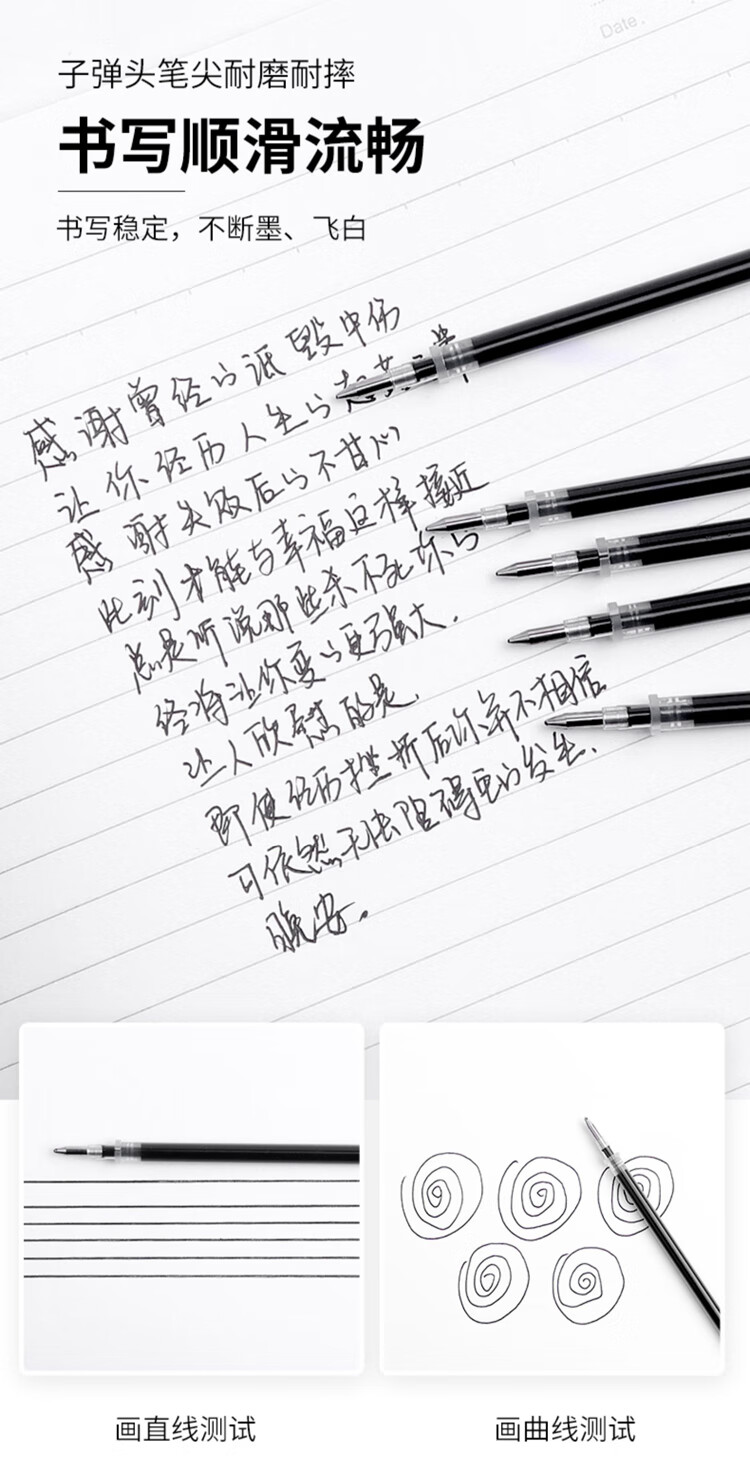 Date.
子弹头笔尖耐磨耐摔
书写顺滑流畅
书写稳定，不断墨、飞白
感谢曾经的诋毁中伤
让你经历人生的
感谢失败后的不甘心
此刻才能与幸福这样接近
总是听说那些杀不死你的
终将让你变的更强大.
让人欣慰的是.
即使经历挫折后你并不相信
可依然无法阻碍它的发生.
晚安.
画直线测试
画曲线测试